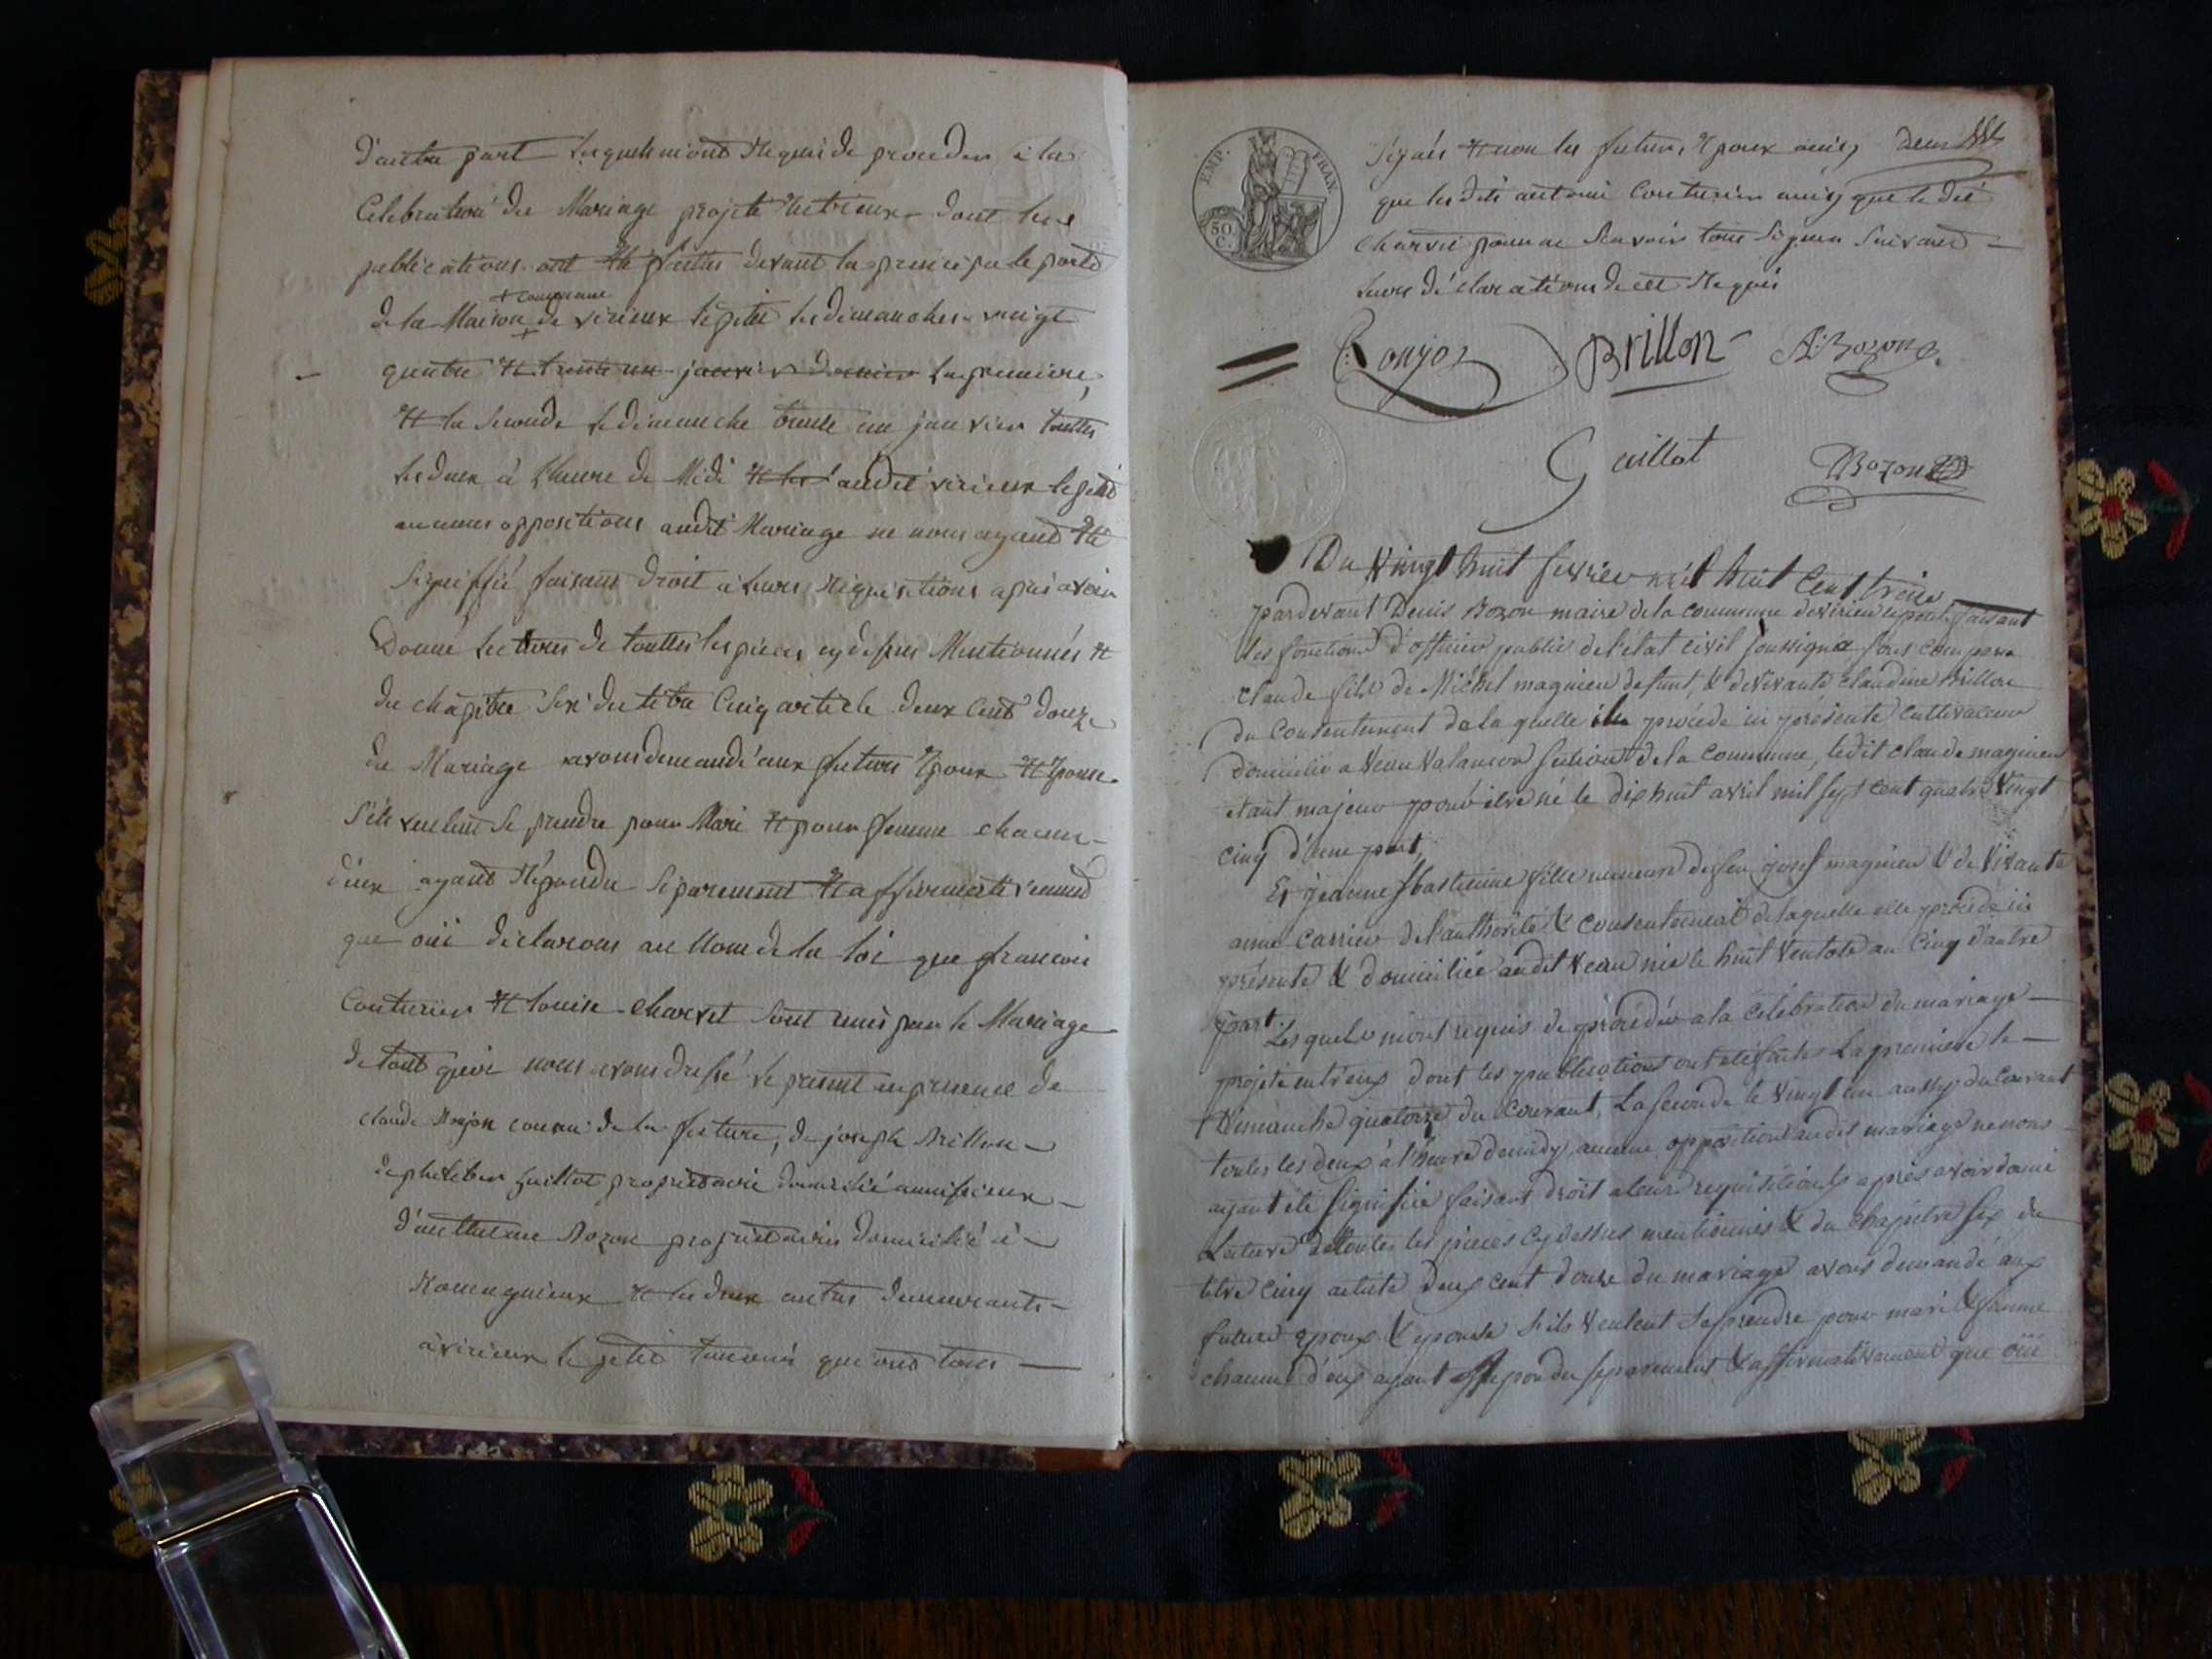 d'autre part Lesquels mont Requis de proceder à la
Celebration du Mariage projeté Entreux dont les
publications ont Eté faittes devant la principale porte
+ commune
de la Maison de virieux le petit les dimanches vingt
quatre Et trente un janvier dernier La premiere,
Et la seconde le dimanche trente un janvier touttes
les deux à L'heure de Midi Et les audit virieux le petit
aucunes oppositions audit Mariage ne nous ayant Eté
Signiffié faisant droit à Leurs Requisitions apres avoir
Donné Lectures de touttes les pieces cy dessus Mentionnés Et
du chapitre Six du titre Cinq article deux Cent douze
du Mariage avons demandé aux futurs Epoux Et Epouse
S'ils veulent Se prendre pour Mari Et pour femme chacun
d'eux ayant Répondu Séparement Et affirmativement
que oüi déclarons au Nom de la loi que francois
Couturier Et Louise Charvet Sont unis par le Mariage
de tout quoi nous avons dressé le present en presence de
claude de la future, de joseph Brillon
de philibert Guillot propriétaire domicilié
d'anthelme Bozon propriétaire domicilié à
Romagnieux Et les deux autres demeurants
à virieux le petit temoins qui ont tous
EMP. FRAN.
50. C.
Signés Et non les futurs Epoux ainsy
que les dits antoine Couturier ainsy que le dit
Charvet pour ne Scavoir tous Signer Suivant
Leurs déclarations de ce Requis
Brillon A. Bozon
Guillot
DBozon
Du Vingt huit fevrier mil huit Cent treize
pardevant Denis Bozon maire de la commune de virieu le petit faisant
les fonctions d'officier public de l'etat civil soussigné sont comparu
claude fils de Michel magnien defunt, & de vivante claudine Brillon
du Consentement de la quelle il procède ici présente Cultivateur
domicilié a section de la commune, ledit claude magnien
etant majeur pour être né le dix huit avril mil sept cent quatre Vingt
cinq d'une part,
Et jeanne Sbastienne fille mineure de feu josef magnien & de Vivante
anne Carrier de l'authorité & consentement de laquelle elle procède ici
présente & domiciliée audit née le huit Ventose an Cinq d'autre
part.
Lesquels m'ont requis de procéder a la Célébration du mariage
projété entr'eux dont les publications ont eté faites La premiere le
Dimanche quatorze du Courant, La seconde le Vingt un aussy du Courant
toutes les deux à l'heure de midy, aucune opposition audit mariage ne nous
ayant eté signifiée faisant droit a leurs requisitions après avoir donné
Lecture de toutes les pieces Cy dessus mentionnées & du chapitre six du
titre cinq article deux cent douze du mariage avons demandé aux
futurs epoux & epouse s'ils Veulent Se prendre pour mari & femme
chacun d'eux ayant Repondu separement & affirmativement que oüi